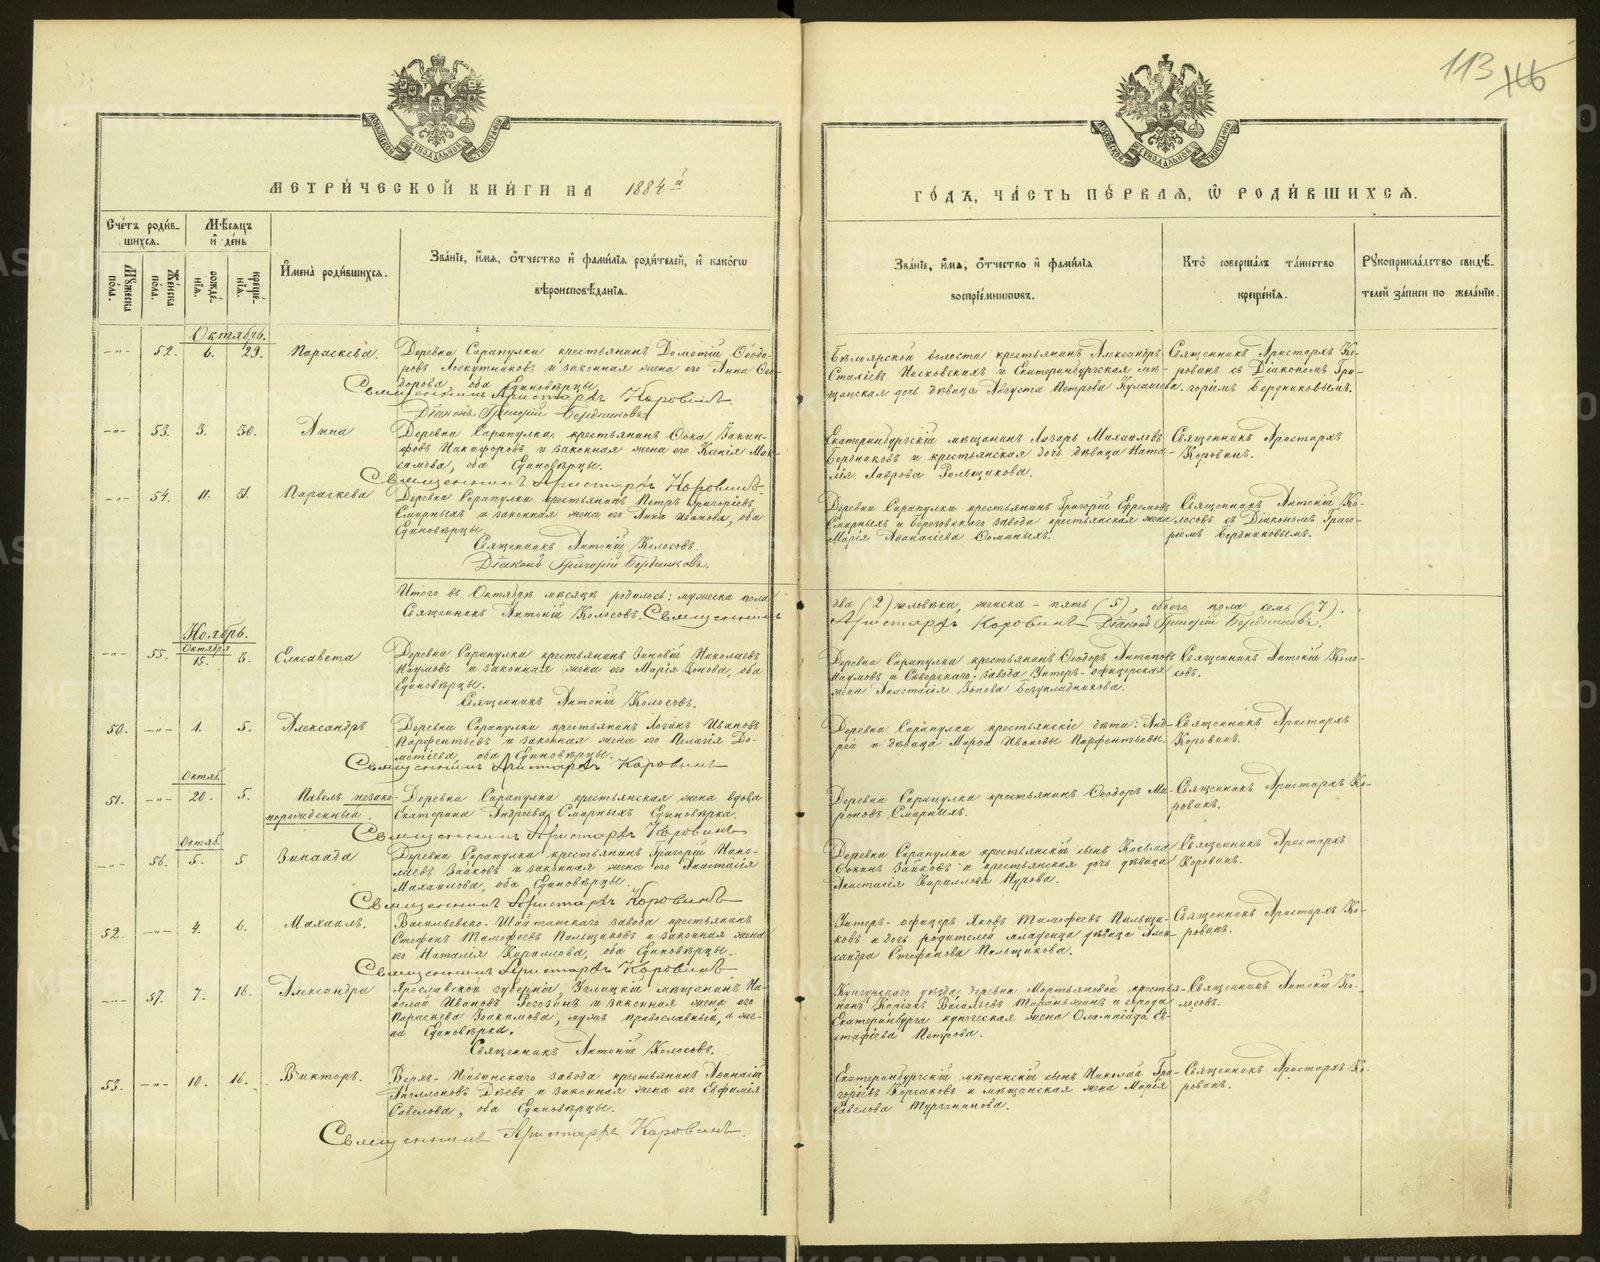 113
МОСКОВСКОЙ СѴНОДАЛЬНОЙ ТИПОГРАФІИ
МОСКОВСКОЙ СѴНОДАЛЬНОЙ ТИПОГРАФІИ
МЕТРИ́ЧЕСКОЙ КНИ́ГИ НА 1884й
ГО́ДЪ, ЧА́СТЬ ПЕ́РВАѦ, Ѡ҆ РОДИ́ВШИХСѦ.
Сче́тъ роди́в-
шихсѧ.
Мꙋ́жеска по́ла.
Же́нска по́ла.
Мѣ́сѧцъ
и҆ де́нь
рожде́нїѧ.
креще́нїѧ.
И҆мена̀ роди́вшихсѧ.
Зва́нїе, и҆́мѧ, ѻ҆́тчество и҆ фами́лїѧ роди́телей, и҆ како́гѡ
вѣроисповѣ́данїѧ.
Зва́нїе, и҆́мѧ, ѻ҆́тчество и҆ фами́лїѧ
воспрїе́мникѡвъ.
Кто̀ соверша́лъ та́инство
креще́нїѧ.
Рꙋкоприкла́дство свидѣ́-
телей за́писи по жела́нїю.
Октябрь.
-"- 52. 6. 29. Параскева.
Деревни Сарапулки крестьянинъ Дометій Ѳеодо-
ровъ Лоскутниковъ и законная жена его Анна Ѳео-
дорова, оба Единовѣрцы.
Священникъ Аристархъ Коровинъ
Діаконъ Григорій Бердниковъ
Бѣлоярской волости крестьянинъ Александръ
и Екатеринбургская мѣ-
щанская дочь дѣвица Августа Петрова
Священникъ Аристархъ Ко-
ровинъ съ Діакономъ Гри-
горіемъ Бердниковымъ.
-"- 53. 3. 30. Анна
Деревни Сарапулки крестьянинъ Ѳока Іакин-
фовъ Никифоровъ и законная жена его Ксенія Мак-
симова, оба Единовѣрцы.
Священникъ Аристархъ Коровинъ.
Екатеринбургскій мѣщанинъ Лазарь Михаиловъ
Бердниковъ и крестьянская дочь дѣвица Ната-
лія Лаврова
Священникъ Аристархъ
Коровинъ.
-"- 54. 11. 31. Параскева
Деревни Сарапулки крестьянинъ Петръ Григоріевъ
Смирныхъ и законная жена его Анна Иванова, оба
Единовѣрцы.
Священникъ Антоній Колосовъ.
Діаконъ Григорій Бердниковъ.
Деревни Сарапулки крестьянинъ Григорій Ефремовъ
Смирныхъ и Березовскаго завода крестьянская жена
Марія Аѳанасіева Ѳоминыхъ.
Священникъ Антоній Ко-
лосовъ съ Діакономъ Григо-
ріемъ Бердниковымъ.
Итого въ Октябрѣ мѣсяцѣ родилось: мужеска пола
два (2) человѣка, женска - пять (5), обоего пола семь (7).
Священникъ Антоній Колосовъ. Священникъ
Аристархъ Коровинъ Діаконъ Григорій Бердниковъ.
Ноябрь.
Октября
-"- 55. 15. 3. Елисавета
Деревни Сарапулки крестьянинъ Зиновій Николаевъ
Наумовъ и законная жена его Марія Іонова, оба
Единовѣрцы.
Священникъ Антоній Колосовъ.
Деревни Сарапулки крестьянинъ Ѳеодоръ Антиповъ
Наумовъ и завода Унтеръ-офицерская
жена Анастасія
Священникъ Антоній Коло-
совъ.
50. -"- 1. 5. Александръ
Деревни Сарапулки крестьянинъ Логинъ Ивановъ
Парфентьевъ и законная жена его Пелагія До-
метіева, оба Единовѣрцы.
Священникъ Аристархъ Коровинъ
Деревни Сарапулки крестьянскіе дѣти: Анд-
рей и дѣвица Марѳа Ивановы Парфентьевы.
Священникъ Аристархъ
Коровинъ.
Октяб.
51. -"- 20. 5. Павелъ незако-
норожденный.
Деревни Сарапулки крестьянская жена вдова
Екатерина Андреева Смирныхъ Единовѣрка.
Священникъ Аристархъ Коровинъ
Деревни Сарапулки крестьянинъ Ѳеодоръ Ма-
роновъ Смирныхъ.
Священникъ Аристархъ Ко-
ровинъ.
Октяб.
-"- 56. 5. 5 Зинаида
Деревни Сарапулки крестьянинъ Григорій Нико-
лаевъ Зайковъ и законная жена его Анастасія
Михаилова, оба Единовѣрцы.
Священникъ Аристархъ Коровинъ
Деревни Сарапулки крестьянскій сынъ Косьма
Ѳокинъ Зайковъ и крестьянская дочь дѣвица
Анастасія Кириллова
Священникъ Аристархъ
Коровинъ.
52. -"- 4. 6. Михаилъ.
Васильевско-Шайтанскаго завода крестьянинъ
Стефанъ Тимоѳеевъ Пильщиковъ и законная жена
его Наталія Кириллова, оба Единовѣрцы.
Священникъ Аристархъ Коровинъ
Унтеръ-офицеръ Яковъ Тимоѳеевъ Пильщи-
ковъ и дочь родителей младенца дѣвица Алек-
сандра Стефанова Пильщикова.
Священникъ Аристархъ Ко-
ровинъ.
-"- 57. 7. 16. Александра
Ярославской губерніи, Углицкій мѣщанинъ Ни-
колай Ивановъ Рогозинъ и законная жена его
Параскева Іоакимова, мужъ православный, а же-
на Единовѣрка.
Священникъ Антоній Колосовъ.
Кунгурскаго уѣзда, деревни Мартьяновой крестья-
нинъ Киріакъ Васильевъ и города
Екатеринбурга купеческая жена Олимпіада Ев-
стафіева Петрова.
Священникъ Антоній Ко-
лосовъ.
53. -"- 10. 16. Викторъ.
Верхъ-Нейвинскаго завода крестьянинъ Аѳанасій
Аполлоновъ и законная жена его Евфимія
Савелова, оба Единовѣрцы.
Священникъ Аристархъ Коровинъ.
Екатеринбургскій мѣщанскій сынъ Николай Гри-
горіевъ и мѣщанская жена Марія
Савелова Турчанинова.
Священникъ Аристархъ Ко-
ровинъ.
METRIKI.GASO-URAL.RU